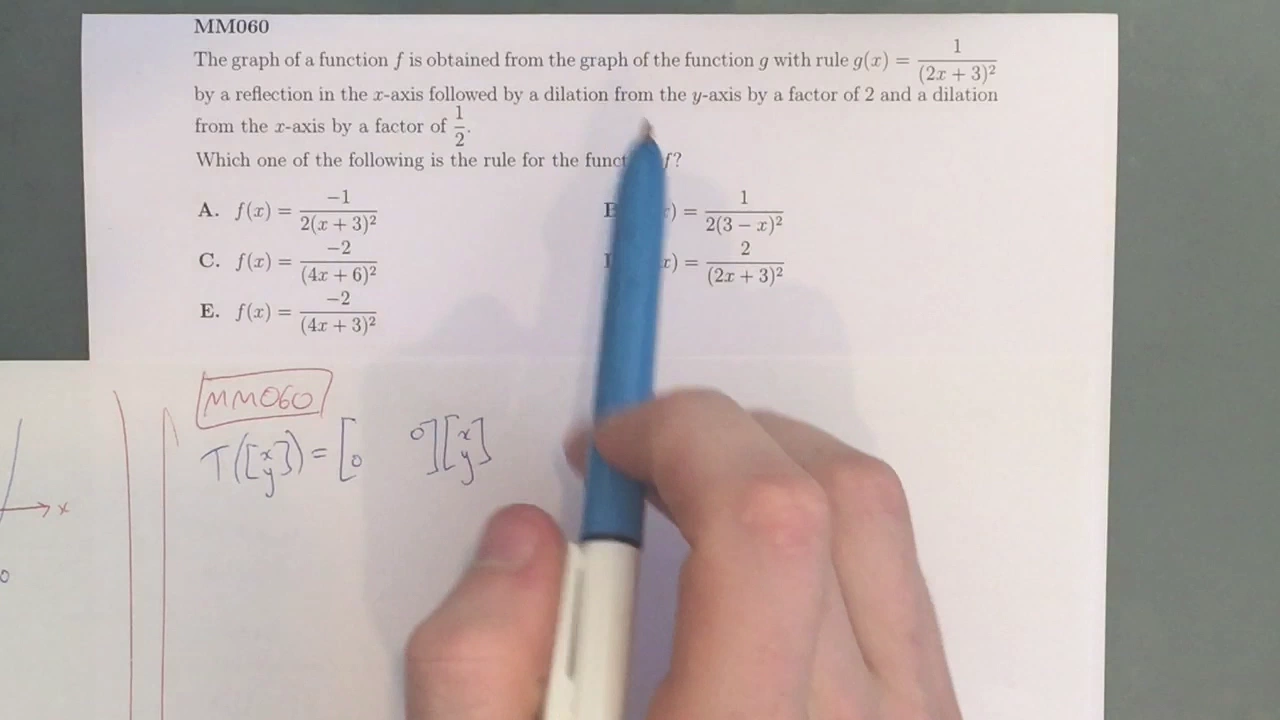 MM060
The graph of a function f is obtained from the graph of the function g with rule g(x) = 1/(2x + 3)²
by a reflection in the x-axis followed by a dilation from the y-axis by a factor of 2 and a dilation
from the x-axis by a factor of 1/2.
Which one of the following is the rule for the funct f?
A. f(x) = -1/2(x + 3)²
) = 1/2(3 − x)²
C. f(x) = -2/(4x + 6)²
x) = 2/(2x + 3)²
E. f(x) = -2/(4x + 3)²
MM060
T([x y]) = [ 0 0][x y]
x
0